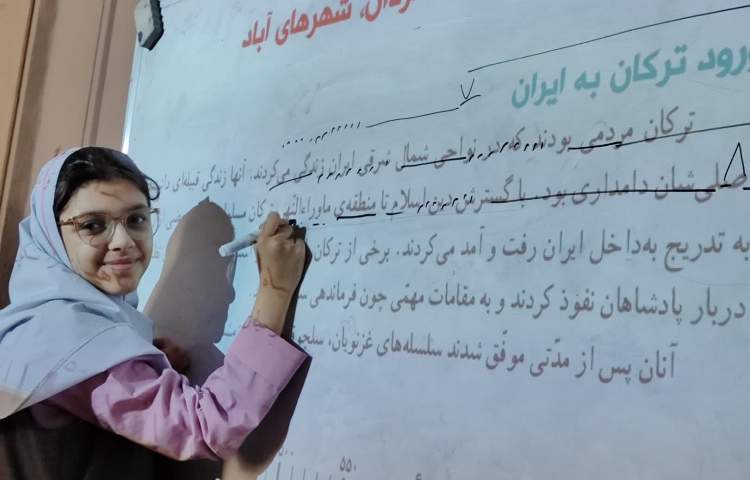 شهرهای آباد
ورود ترکان به ایران
ترکان مردمی بودند که در نواحی شمال شرقی ایران زندگی می‌کردند. آنها زندگی قبیله‌ای
شان دامداری بود. با گسترش دین اسلام تا منطقه‌ی ماوراءالنهر ترکان
به تدریج به‌داخل ایران رفت و آمد می‌کردند. برخی از ترکان
دربار پادشاهان نفوذ کردند و به مقامات مهمّی چون فرماندهی
آنان پس از مدّتی موفّق شدند سلسله‌های غزنویان،
۵۵۰